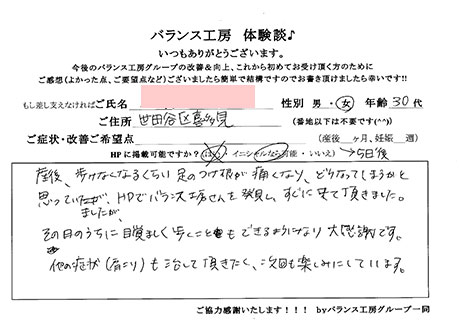 バランス工房 体験談♪
いつもありがとうございます。
今後のバランス工房グループの改善&向上、これから初めてお受け頂く方のために
ご感想(よかった点、ご要望点など)ございましたら簡単で結構ですのでお書き頂けましたら幸いです!!
もし差し支えなければご氏名 性別 男・女 年齢 30代
ご住所 世田谷区喜多見 (番地以下は不要です(^^))
ご症状・改善ご希望点 (産後 ヶ月、妊娠 週)
HPに掲載可能ですか?(はい・イニシャルなら可能・いいえ) →5日後
産後、歩けなくなるくらい足のつけ根が痛くなり、どうなってしまうかと
思っていましたが、HPでバランス工房さんを発見し、すぐに来て頂きました。
その日のうちに目覚ましく歩くこともできるようになり大感謝です。
他の症状(肩こり)も治して頂きたく、次回も楽しみにしています。
ご協力感謝いたします!!! byバランス工房グループ一同